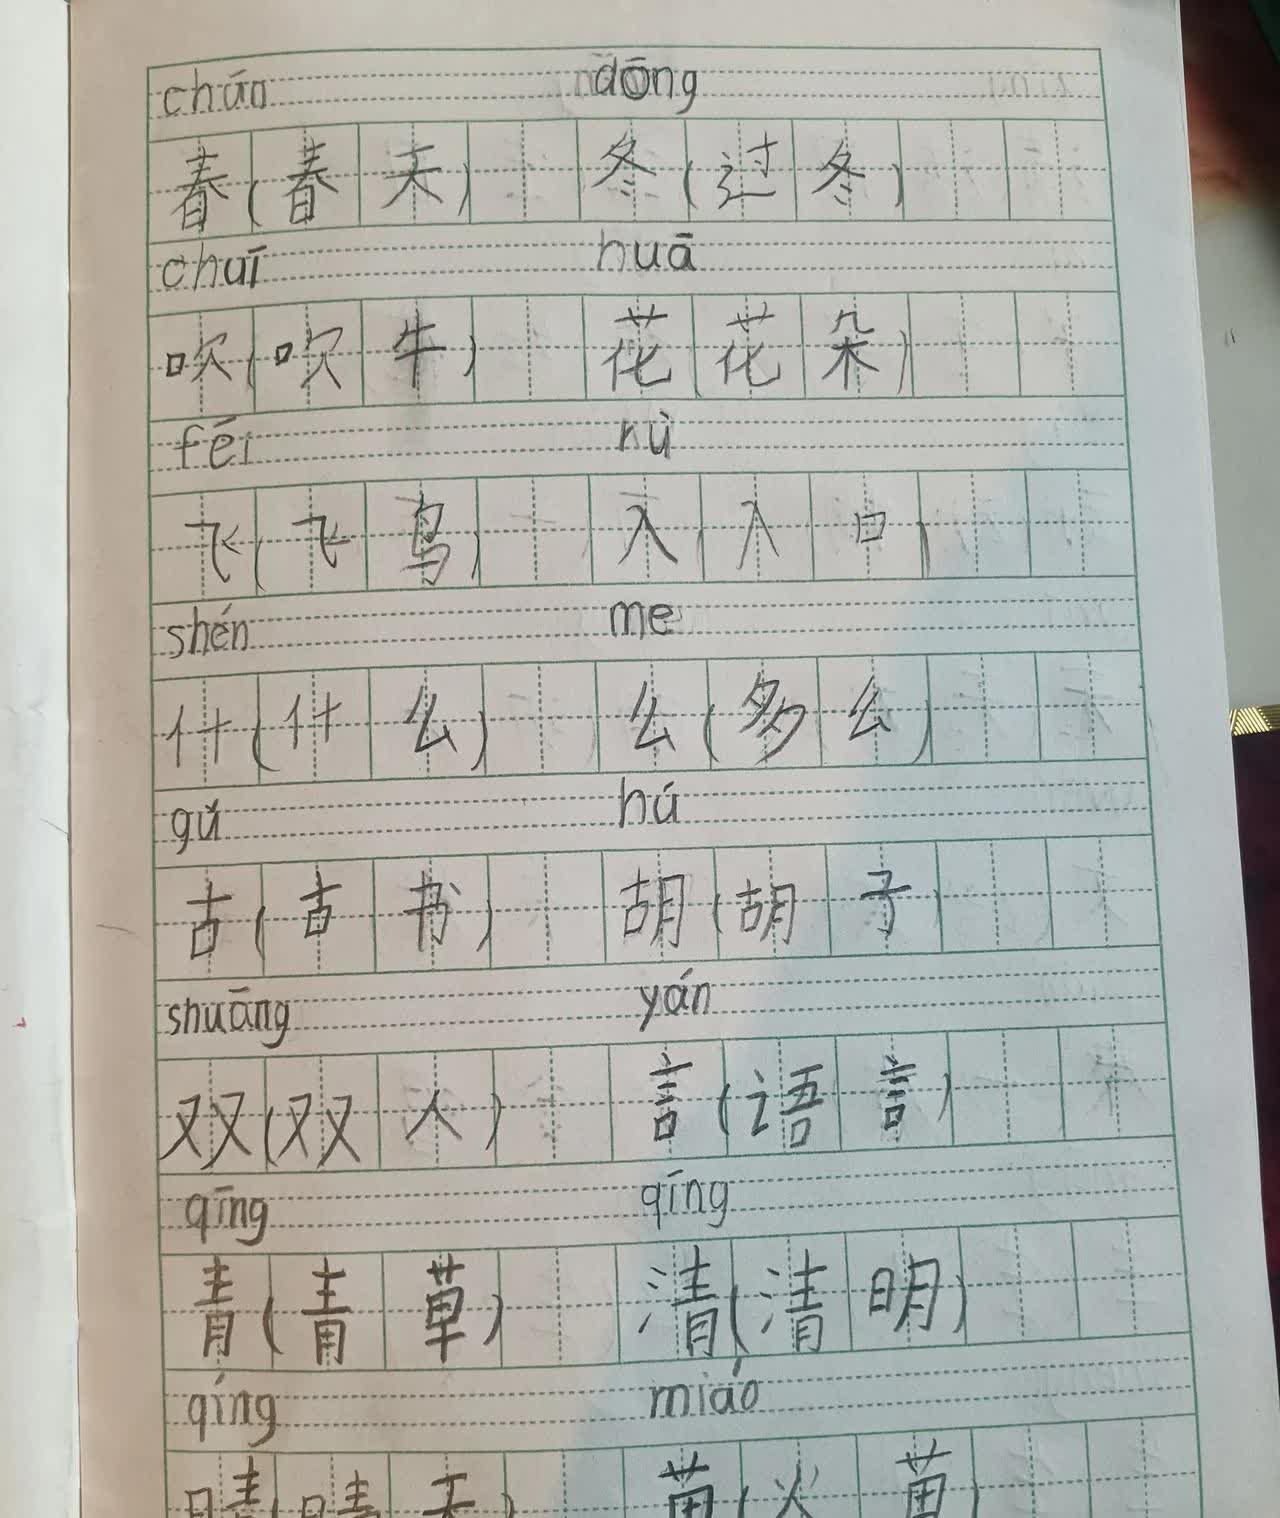 chún dōng
春(春天) 冬(过冬)
chuī huā
吹(吹牛) 花 花朵)
fēi rù
飞(飞鸟) 入 入口)
shén me
什(什么) 么(多么)
gǔ hú
古(古书) 胡(胡子)
shuāng yán
双(双人) 言(语言)
qīng qīng
青(青草) 清(清明)
qíng miáo
晴(晴天) 苗(火苗)